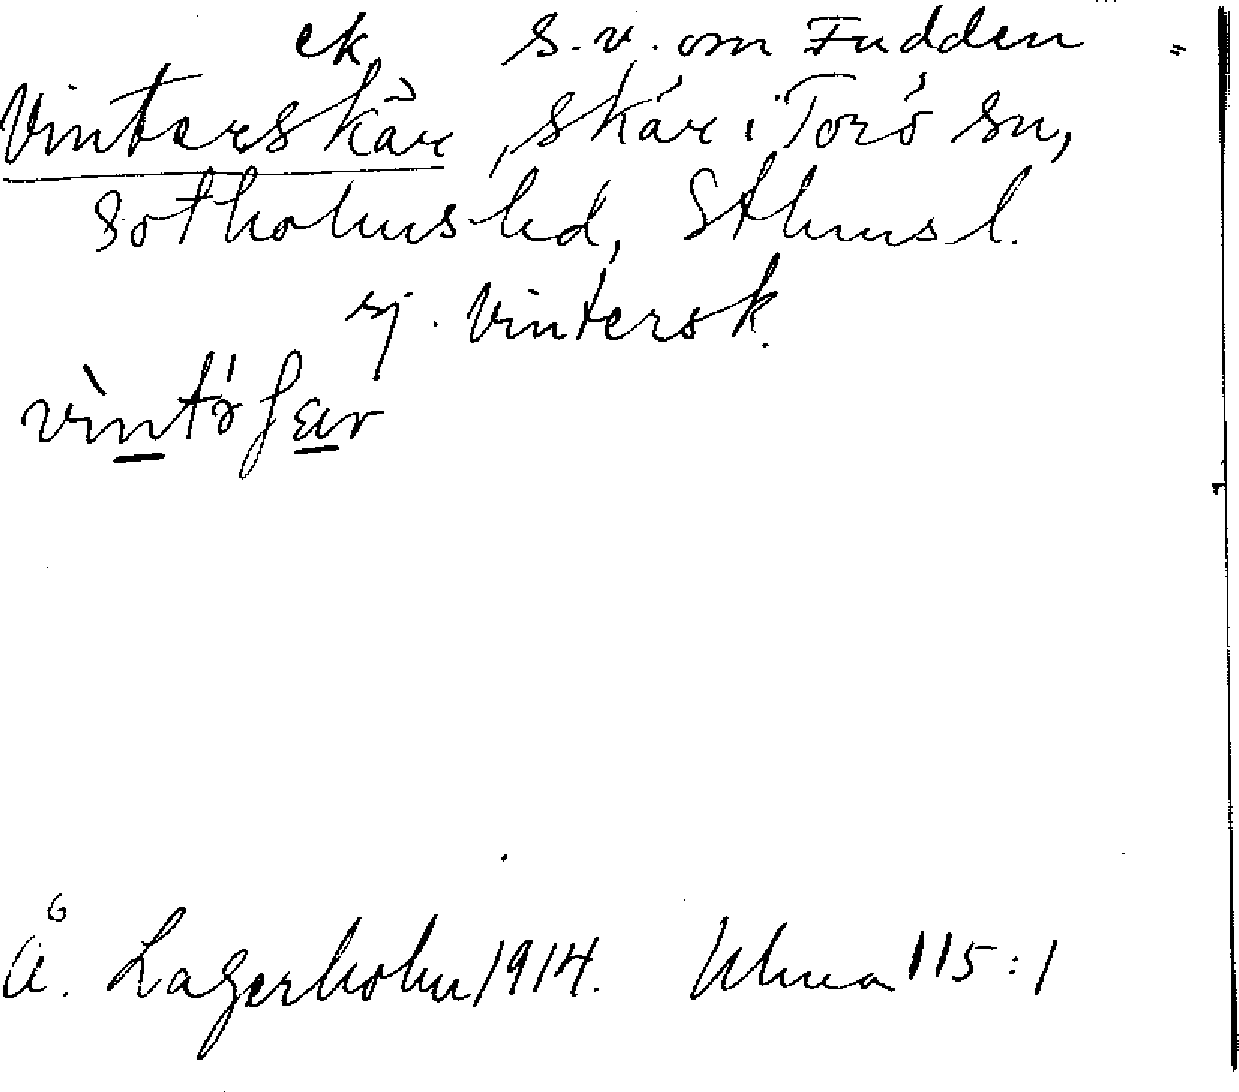 ek s.v. om Fudden
Vinterskär, skär i Torö sn,
Sotholms hd, Sthms l.
sj. Vintersk.
Å. Lagerholm 1914. Uhma 115:1